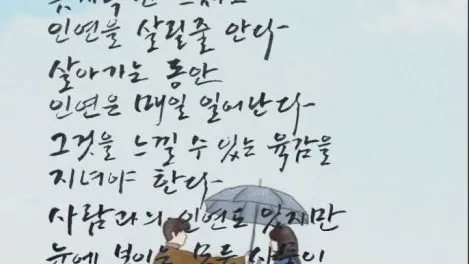 인연을 살릴줄 안다
살아가는 동안
인연은 매일 일어난다
그것을 느낄 수 있는 육감을
지녀야 한다
사람과의 인연도 있지만
눈에 보이는 모든 사물이